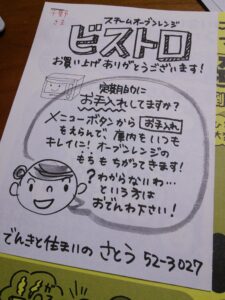 スチームオーブンレンジ
ビストロ
お買い上げありがとうございます!
定期的に
お手入れしてますか?
メニューボタンから お手入れ
をえらんで 庫内をいつも
キレイに! オーブンレンジの
もちもちがってきます!
?わからないわ…
という方は
おでんわ下さい!
でんきと住まいの さとう 52-3027